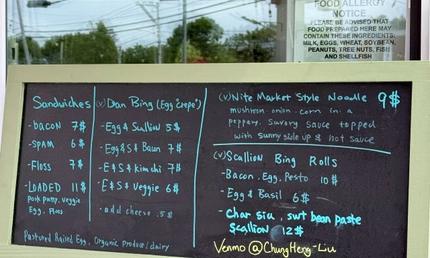 FOOD ALLERGY
NOTICE
PLEASE BE ADVISED THAT
FOOD PREPARED HERE MAY
CONTAIN THESE INGREDIENTS:
MILK, EGGS, WHEAT, SOYBEAN,
PEANUTS, TREE NUTS, FISH
AND SHELLFISH
Sandwiches
-bacon 7$
-spam 6$
-Floss 7$
-LOADED 11$
pork patty. veggie
Egg. Floss
(v) Dan Bing (Egg "Crepe")
-Egg & Scallion 5$
-Egg & S & Bacon 7$
-E & S & kimchi 7$
-E & S & Veggie 6$
-add cheese .5$
Pastured Raised Egg, Organic Produce/dairy
(v) Nite Market Style Noodle 9$
mushroom. onion. corn in a
peppery. Savory sauce topped
with sunny side up & hot sauce
(v) Scallion Bing Rolls
-Bacon. Egg. Pesto 10$
-Egg & Basil 6$
-Char siu, swt bean paste
Scallion 12$
Venmo @ChungHeng-Liu